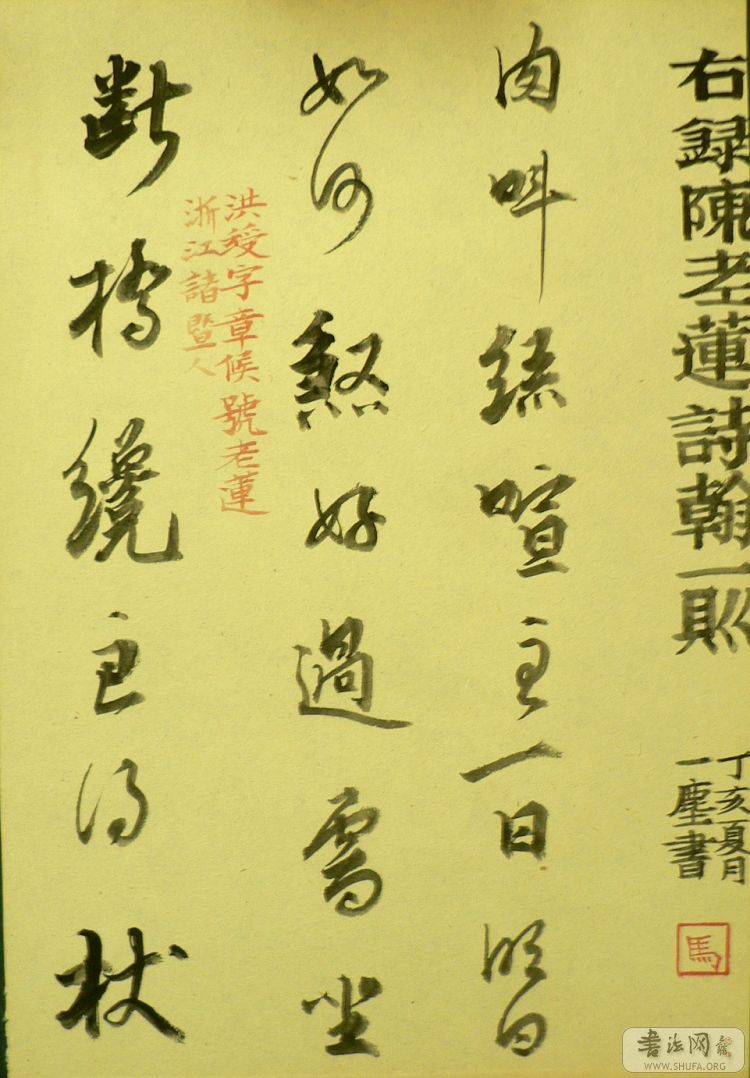 右録陳老蓮詩翰一則
丁亥夏月
一塵書
馬
肉叫絲喧主一日明日
如何好過雪坐
斷橋纔得杖
洪綬字章候號老蓮
浙江諸暨人
書法网
WWW.SHUFA.ORG